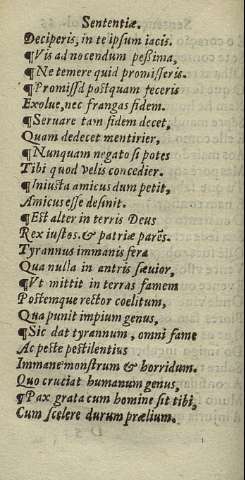 Sententiæ.
Deciperis, in te ipsum iacis.
¶Vis ad nocendum peßima,
¶Ne temere quid promisseris.
¶Promissa postquam feceris
Exolue, nec frangas fidem.
¶Seruare tam fidem decet,
Quam dedecet mentirier,
¶Nunquam negato si potes
Tibi quod velis concedier.
¶Iniusta amicus dum petit,
Amicus esse desinit.
¶Est alter in terris Deus
Rex iustos. & patriæ parẽs.
Tyrannus immanis fera
Qua nulla in antris sæuior,
¶Vt mittit in terras famem
Postemque rector coelitum,
Qua punit impium genus,
¶Sic dat tyrannum, omni fame
Ac peste pestilentius
Immane monstrum & horridum.
Quo cruciat humanum genus,
¶Pax grata cum homine sit tibi,
Cum scelere durum prælium.